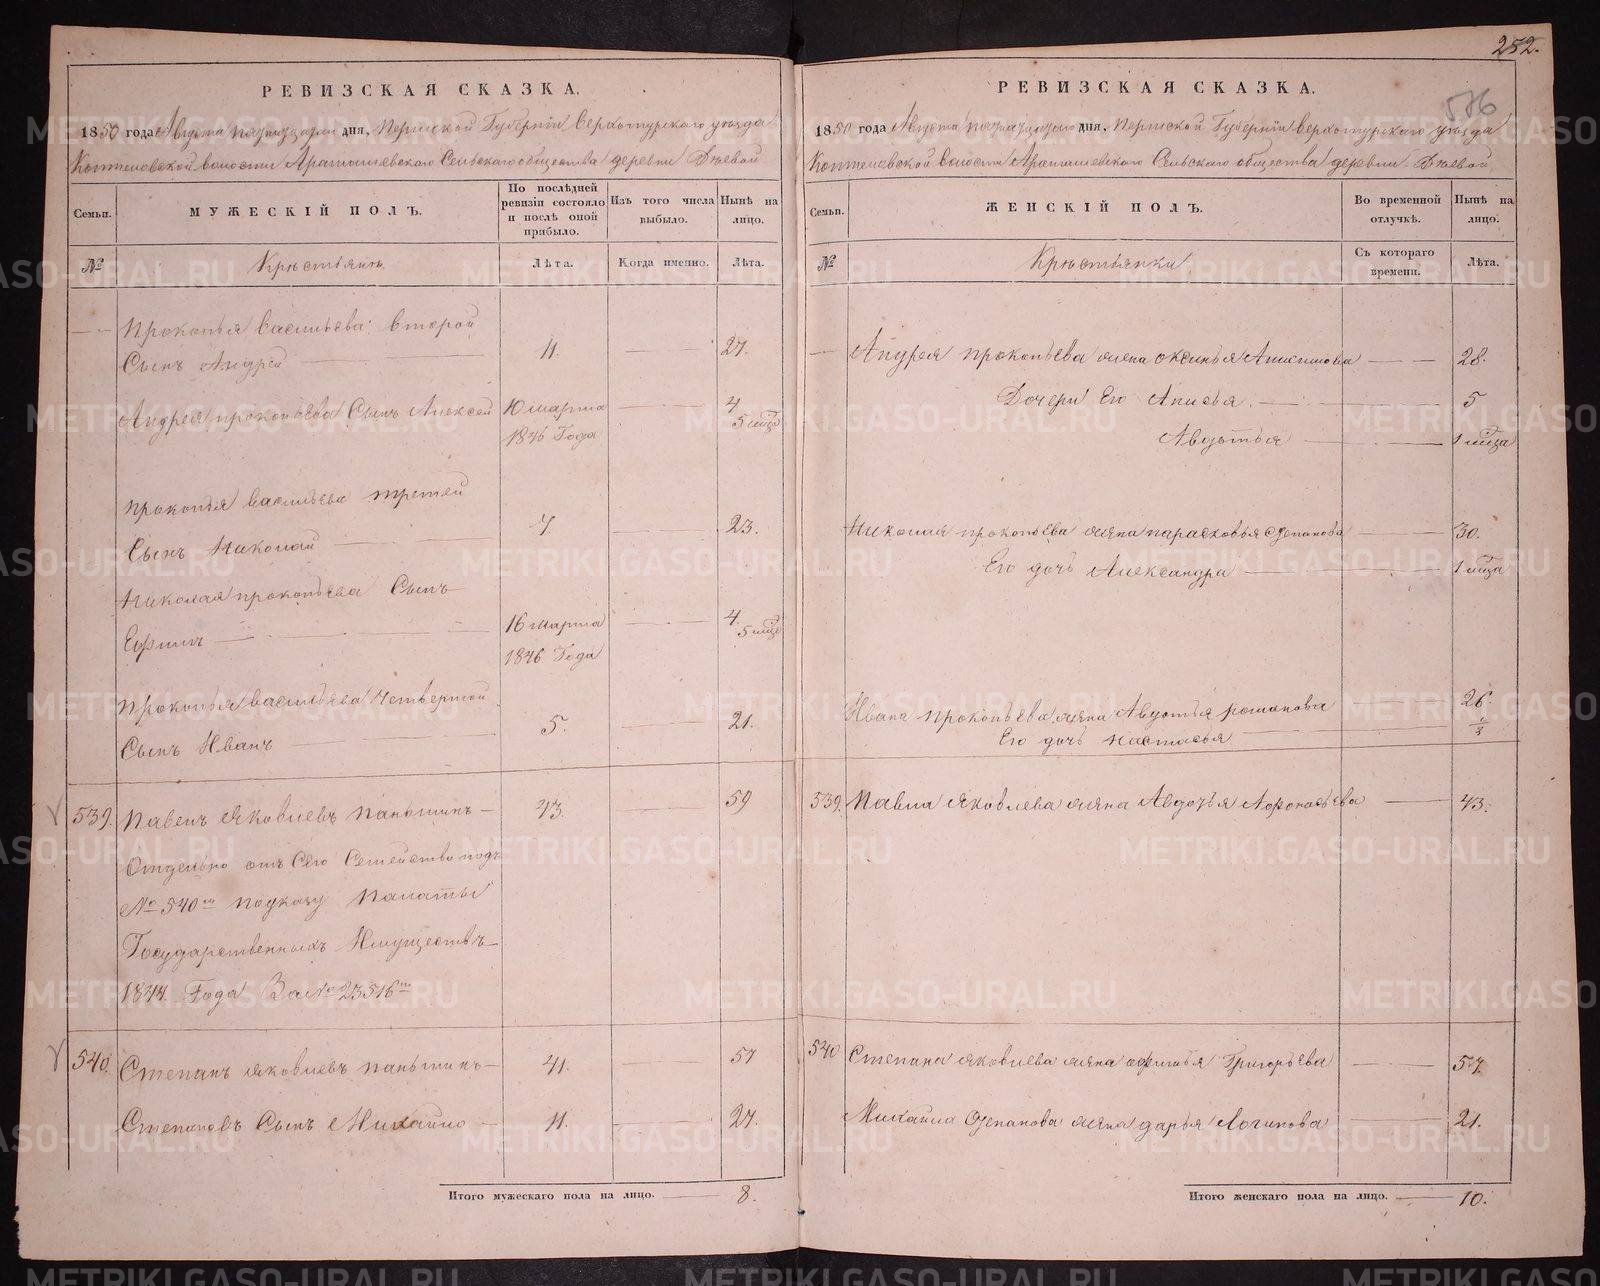 252.
576
РЕВИЗСКАЯ СКАЗКА.
1850 года Августа дня, Пермской Губернии Верхотурского уезда
Коптеловской волости Арамашевского Сельского общества деревни
Семьи.
МУЖЕСКІЙ ПОЛЪ.
По послѣдней ревизіи состояло и послѣ оной прибыло.
Изъ того числа выбыло.
Нынѣ на лицо.
№
Крѣстьянъ
Лѣта.
Когда именно.
Лѣта.
Прокопья Васильева второй
Сынъ Андрей 11. 27.
Андрея прокопьева Сынъ Алексей 10 марта 1846 Года 4 5 мѣц
Прокопья Васильева третей
Сынъ Николай 7. 23.
Николая прокопьева Сынъ
Ефимъ 16 марта 1846 Года 4. 5 мѣц
Прокопья Васильева Четвертой
Сынъ Иванъ 5. 21.
539. Павелъ Яковлевъ Паньшинъ 43. 59
Отдельно отъ Сего Семейства подъ
№ 540 Палаты
Государственныхъ Имуществъ
1844 Года За № 23516
540. Степанъ Яковлевъ паньшинъ 41. 57
Степановъ Сынъ Михайло 11. 27.
Итого мужескаго пола на лицо. 8.
РЕВИЗСКАЯ СКАЗКА.
1850 года Августа дня, Пермской Губернии Верхотурского уезда
Коптеловской волости Арамашевского Сельского общества деревни
Семьи.
ЖЕНСКІЙ ПОЛЪ.
Во временной отлучкѣ.
Нынѣ на лицо.
№
Крѣстьянки
Съ котораго времени.
Лѣта.
Андрея прокопьева жена оксинья Анисимова 28.
Дочери Его Анисья 5
Авдотья 1 мѣца
Николая прокопьева жена парасковья степанова 30.
Его дочь Александра 1 мѣца
Ивана прокопьева жена Авдотья романова 26.
Его дочь настасья
539. Павла Яковлева жена Авдотья Афонасьева 43.
540 Степана Яковлева жена офимья Григорьева 57.
Михайла Степанова жена дарья Логинова 21.
Итого женскаго пола на лицо. 10.
METRIKI.GASO-URAL.RU